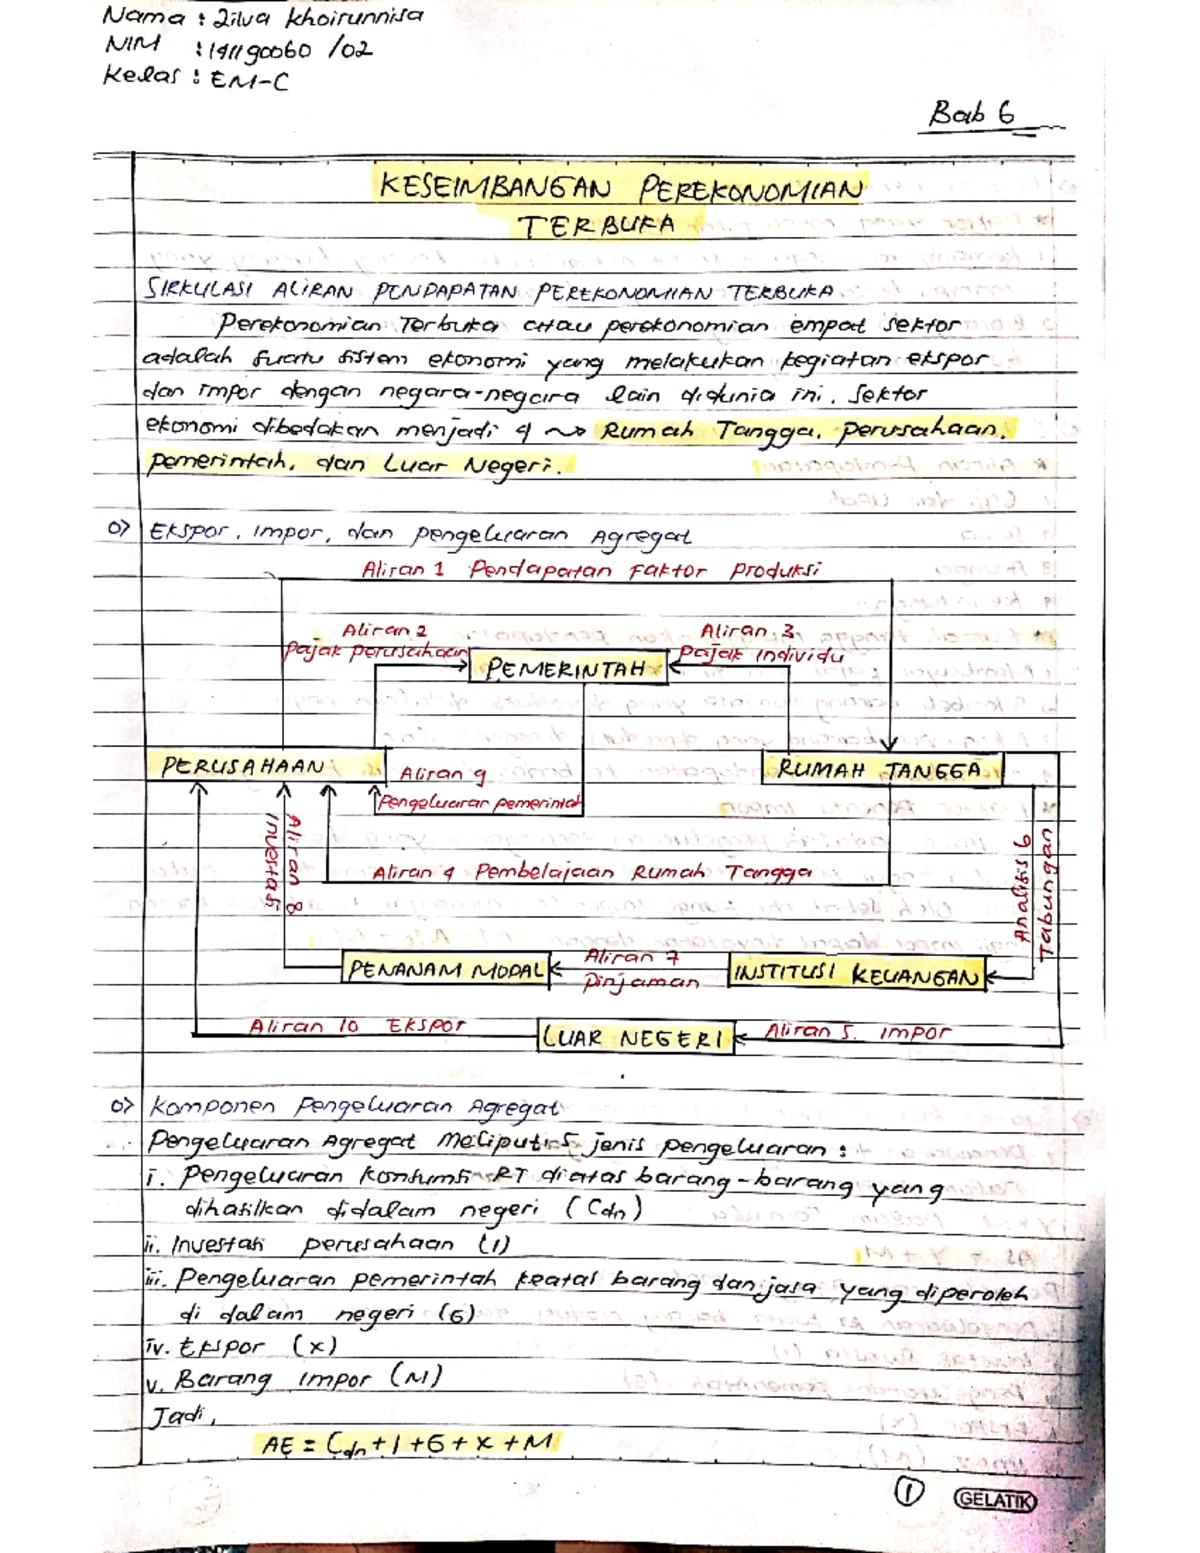 Nama : Zilva Khoirunnisa
NIM : 141190060 /02
Kelas : EM-C
Bab 6
KESEIMBANGAN PEREKONOMIAN
TERBUKA
SIRKULASI ALIRAN PENDAPATAN PEREKONOMIAN TERBUKA
Perekonomian Terbuka atau perekonomian empat sektor
adalah suatu sistem ekonomi yang melakukan kegiatan ekspor
dan impor dengan negara-negara lain didunia ini. Sektor
ekonomi dibedakan menjadi 4 ~> Rumah Tangga, perusahaan,
pemerintah, dan Luar Negeri.
0> Ekspor, Impor, dan pengeluaran Agregat
Aliran 1 Pendapatan Faktor Produksi
Aliran 2
Pajak perusahaan
Aliran 3
Pajak individu
PEMERINTAH
PERUSAHAAN
Aliran 9
Pengeluaran pemerintah
RUMAH TANGGA
Aliran 8
Investasi
Aliran 4 Pembelajaan Rumah Tangga
Analisis 6
Tabungan
PENANAM MODAL
Aliran 7
Pinjaman
INSTITUSI KEUANGAN
Aliran 10 EKSPOR
LUAR NEGERI
Aliran 5. Impor
0> Komponen Pengeluaran Agregat
Pengeluaran Agregat meliputi 5 jenis pengeluaran :
i. Pengeluaran konsumsi RT diatas barang-barang yang
dihasilkan didalam negeri (Cdn)
ii. Investasi perusahaan (I)
iii. Pengeluaran pemerintah keatas barang dan jasa yang diperoleh
di dalam negeri (G)
iv. Ekspor (X)
v. Barang impor (M)
Jadi,
AE = Cdn + I + G + X + M
1
GELATIK